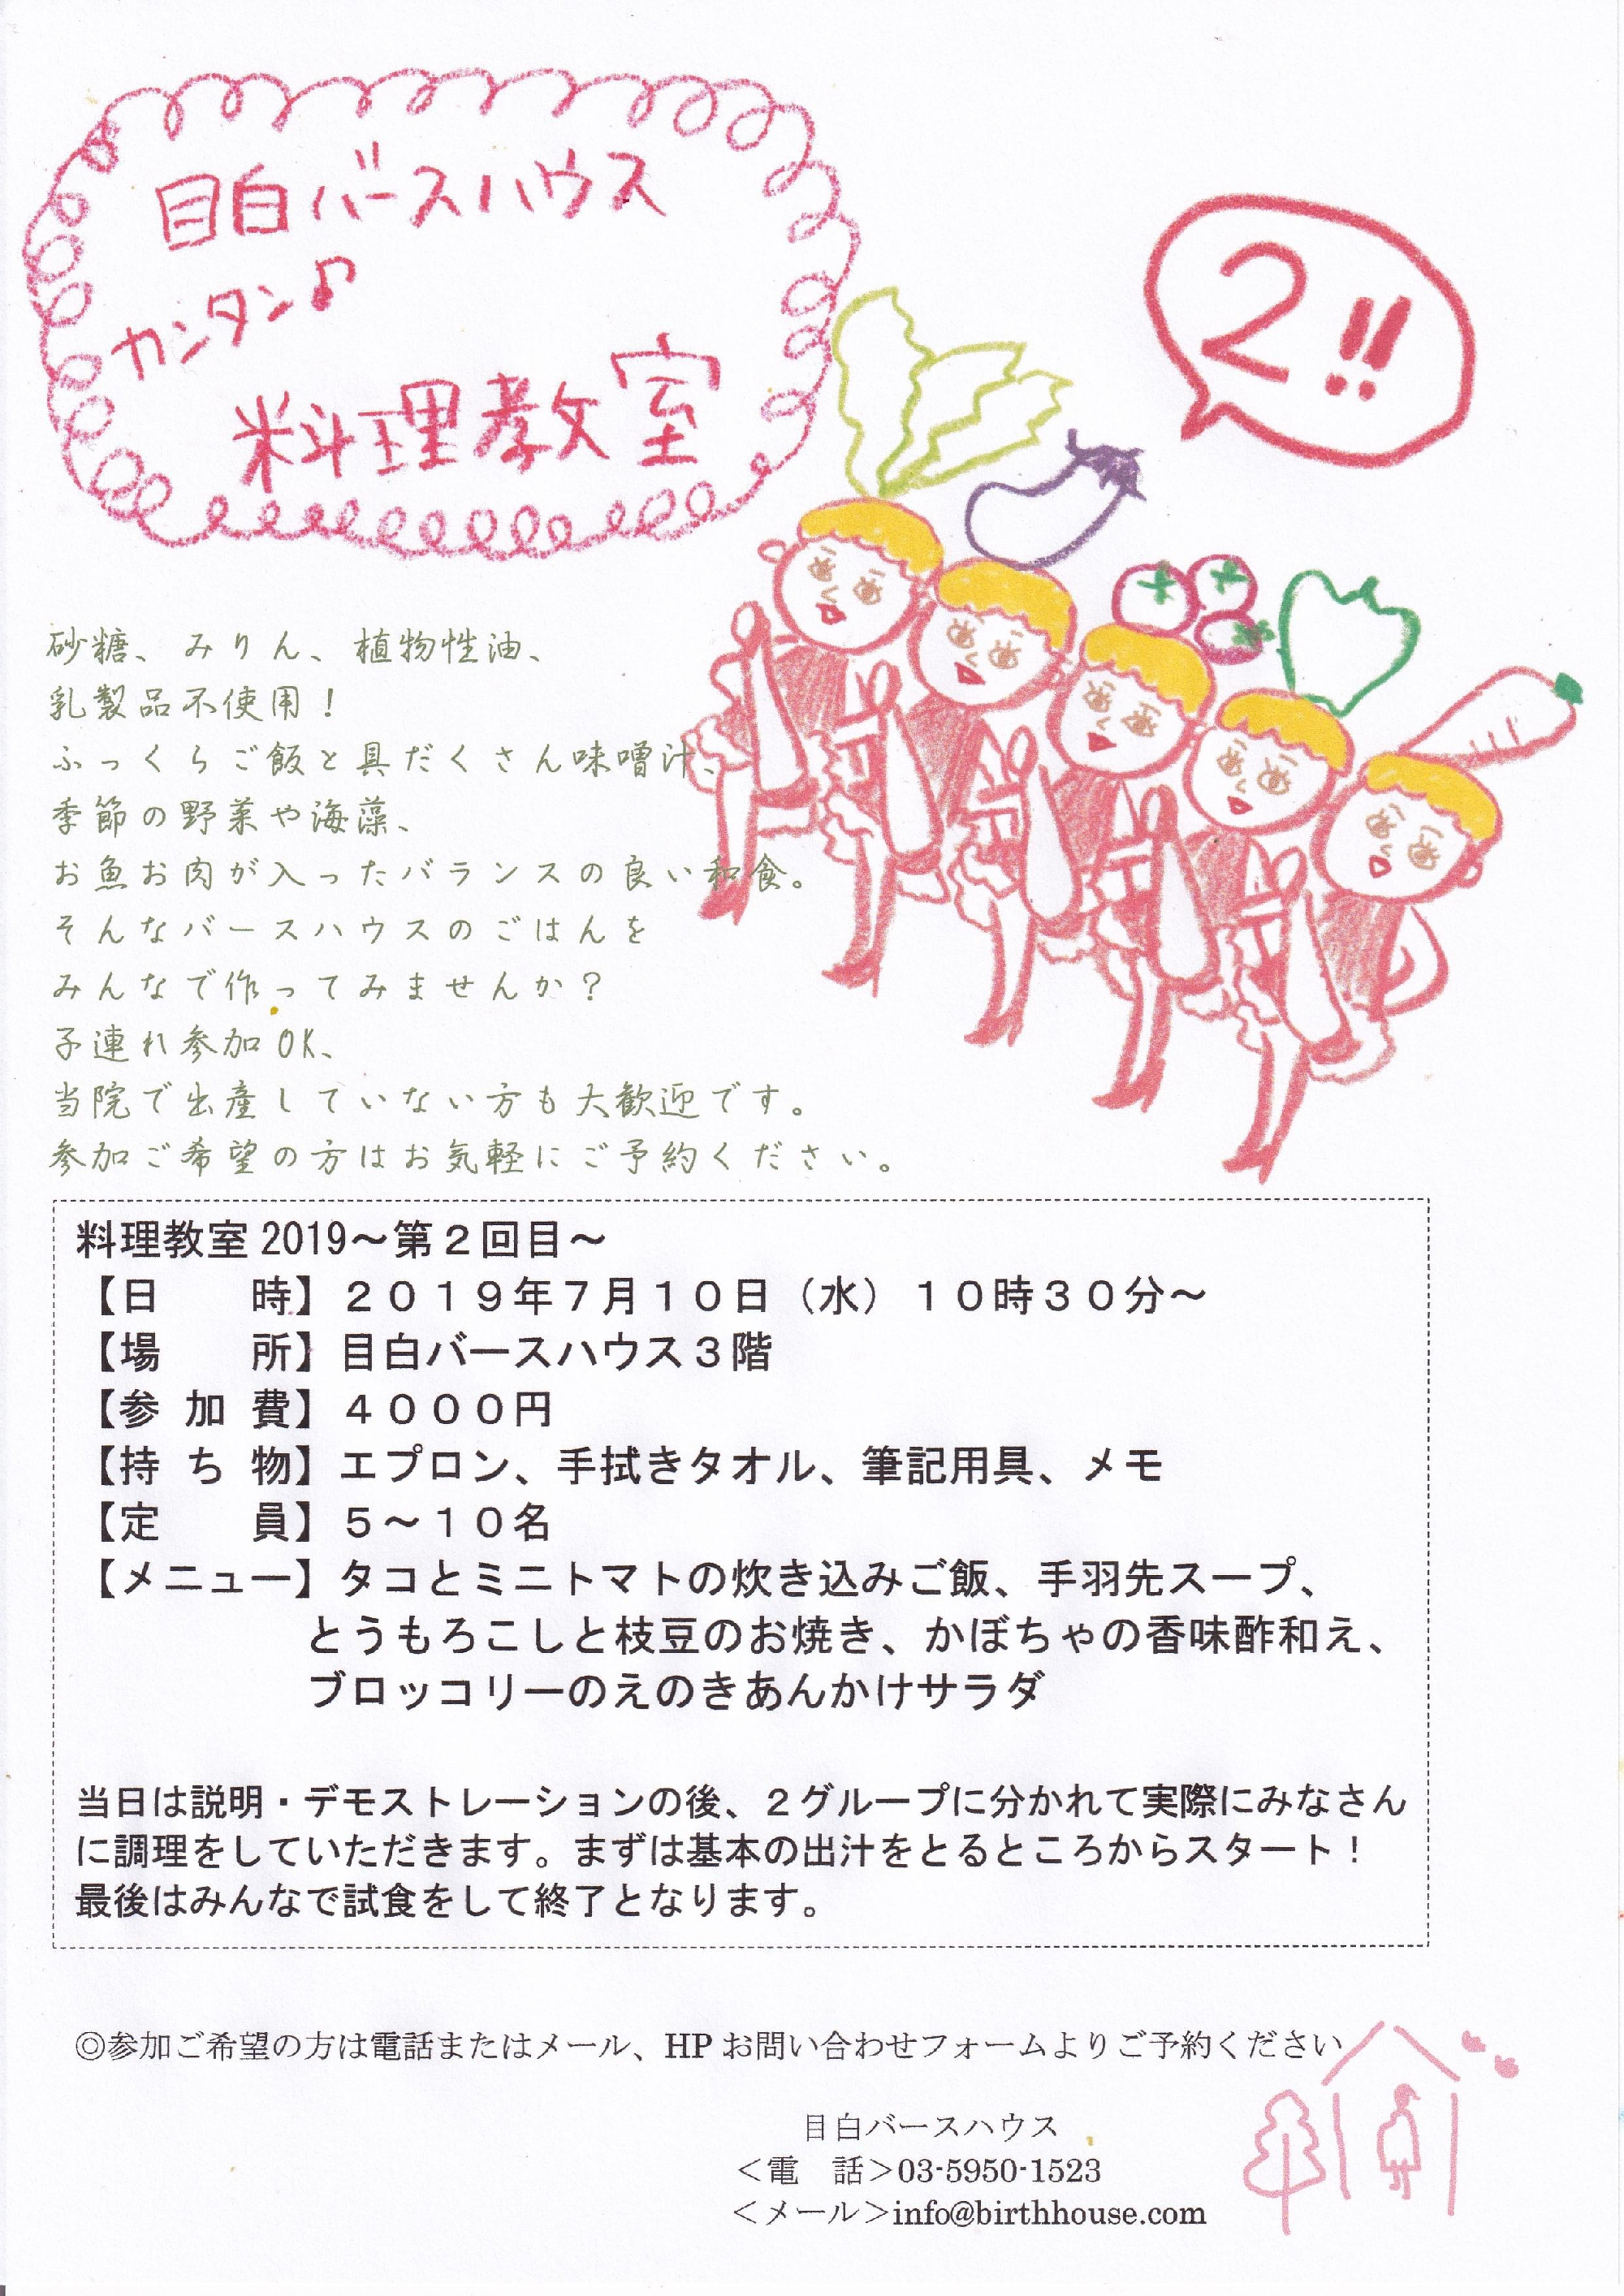 目白バースハウス
カンタン♪
料理教室
2!!
砂糖、みりん、植物性油、
乳製品不使用！
ふっくらご飯と具だくさん味噌汁、
季節の野菜や海藻、
お魚お肉が入ったバランスの良い和食。
そんなバースハウスのごはんを
みんなで作ってみませんか？
子連れ参加OK、
当院で出産していない方も大歓迎です。
参加ご希望の方はお気軽にご予約ください。
料理教室 2019～第２回目～
【日　　時】２０１９年７月１０日（水）１０時３０分～
【場　　所】目白バースハウス３階
【参 加 費】４０００円
【持 ち 物】エプロン、手拭きタオル、筆記用具、メモ
【定　　員】５～１０名
【メニュー】タコとミニトマトの炊き込みご飯、手羽先スープ、
とうもろこしと枝豆のお焼き、かぼちゃの香味酢和え、
ブロッコリーのえのきあんかけサラダ
当日は説明・デモストレーションの後、２グループに分かれて実際にみなさん
に調理をしていただきます。まずは基本の出汁をとるところからスタート！
最後はみんなで試食をして終了となります。
◎参加ご希望の方は電話またはメール、HP お問い合わせフォームよりご予約ください
目白バースハウス
＜電　話＞03-5950-1523
＜メール＞info@birthhouse.com